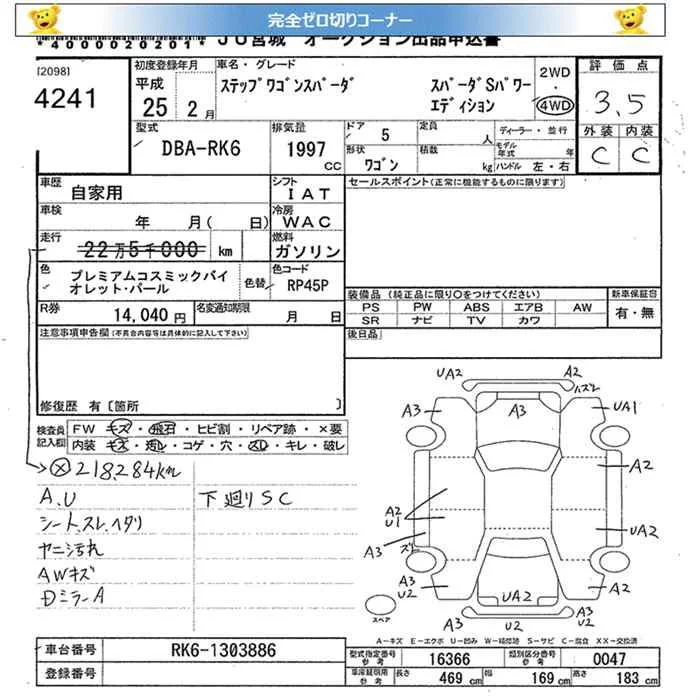 完全ゼロ切りコーナー
*4000020201* JU宮城 オークション出品申込書
[2098]
4241
初度登録年月
平成
25 2月
車名・グレード
ステップワゴンスパーダ スパーダSパワー
エディション
2WD
・
4WD
評価点
3.5
外装 内装
C C
型式
DBA-RK6
排気量
1997
CC
ドア 5
定員 人
ディーラー・並行
形状
ワゴン
積載 kg
モデル年式 年
ハンドル 左・右
車歴
自家用
シフト
IAT
セールスポイント(正常に機能するものに限ります)
車検
年 月( 日)
冷房
WAC
走行
22万5千000 km
燃料
ガソリン
色
プレミアムコスミックバイ
オレット・パール
色替
色コード
RP45P
装備品 (純正品に限り○をつけてください)
新車保証書
PS PW ABS エアB AW
SR ナビ TV カワ
有・無
R券
14,040 円
名変通知期限
月 日
後日品
注意事項申告欄(不具合内容等は具体的に記入して下さい)
修復歴 有〔箇所 〕
検査員
記入欄
FW キズ・飛石・ヒビ割・リペア跡・×要
内装 キズ・汚れ・コゲ・穴・スレ・キレ・破レ
ⓧ218,284km
A、U
下廻りSC
シート、スレ、ヘタリ
ヤニ汚れ
AWキズ
Dミラー A
UA2
A2
ハズレ
A3
A3
UA1
A2
A2
U1
UA2
A3
ズレ
A3
U2
A2
UA2
A3
U2
A3
U2
スペア
A-キズ E-エクボ U-凹み W-補修跡 S-サビ C-腐食 XX-交換済
車台番号
RK6-1303886
登録番号
型式指定番号
参考
16366
類別区分番号
参考
0047
車庫証明用
参考
長さ 469 cm
幅 169 cm
高さ 183 cm